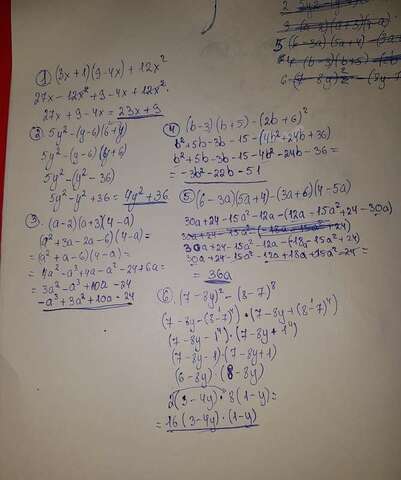 ① (3x+1)(9-4x)+12x²
27x-12x²+9-4x+12x²
27x+9-4x=23x+9
② 5y²-(y-6)(6+y)
5y²-(y-6)(y+6)
5y²-(y²-36)
5y²-y²+36=4y²+36
3. (a-2)(a+3)(4-a)
(a²+3a-2a-6)(4-a)=
=(a²+a-6)(4-a)=
=4a²-a³+4a-a²-24+6a=
=3a²-a³+10a-24
-a³+3a²+10a-24
④ (b-3)(b+5)-(2b+6)²
b²+5b-3b-15-(4b²+24b+36)
b²+5b-3b-15-4b²-24b-36=
=-3b²-22b-51
⑤ (6-3a)(5a+4)-(3a+6)(4-5a)
30a+24-15a²-12a-(12a-15a²+24-30a)
30a+24-15a²-12a-(-18a-15a²+24)
30a+24-15a²-12a+18a+15a²-24=
=36a
⑥ (7-8y)²-(8-7)⁸
(7-8y-(8-7)⁴)·(7-8y+(8-7)⁴)
(7-8y-1⁴)·(7-8y+1⁴)
(7-8y-1)·(7-8y+1)
(6-8y)·(8-8y)
2(3-4y)·8(1-y)=
=16(3-4y)·(1-y)